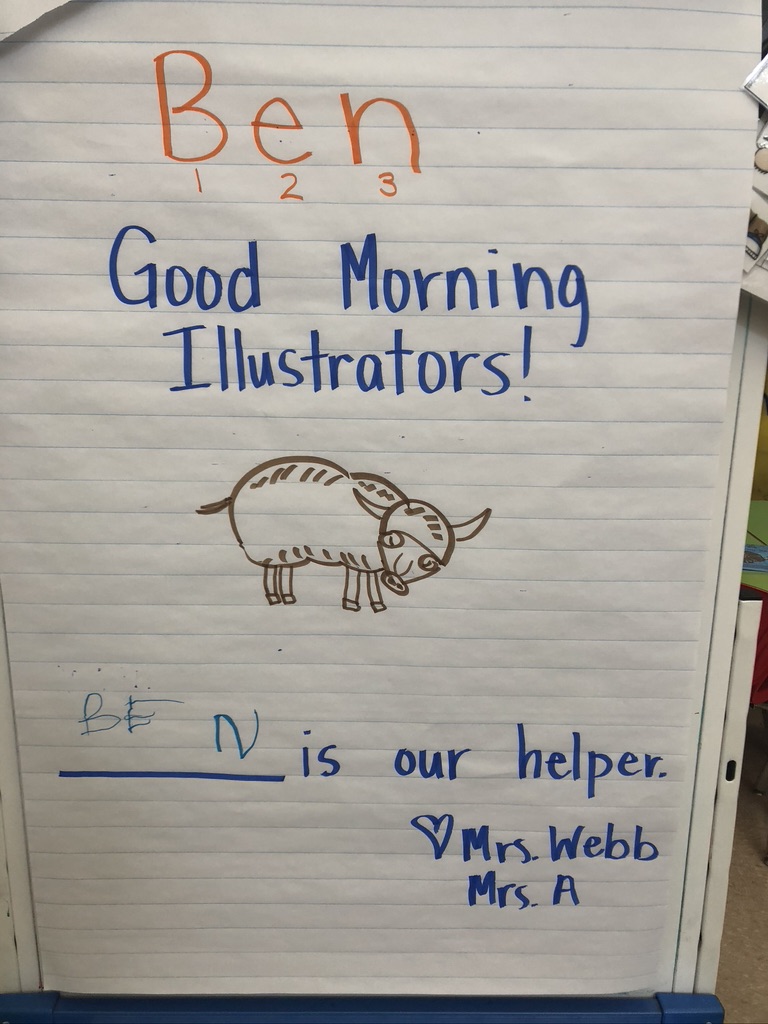 Ben
1 2 3
Good Morning
Illustrators!
BE N is our helper.
♡ Mrs. Webb
Mrs. A